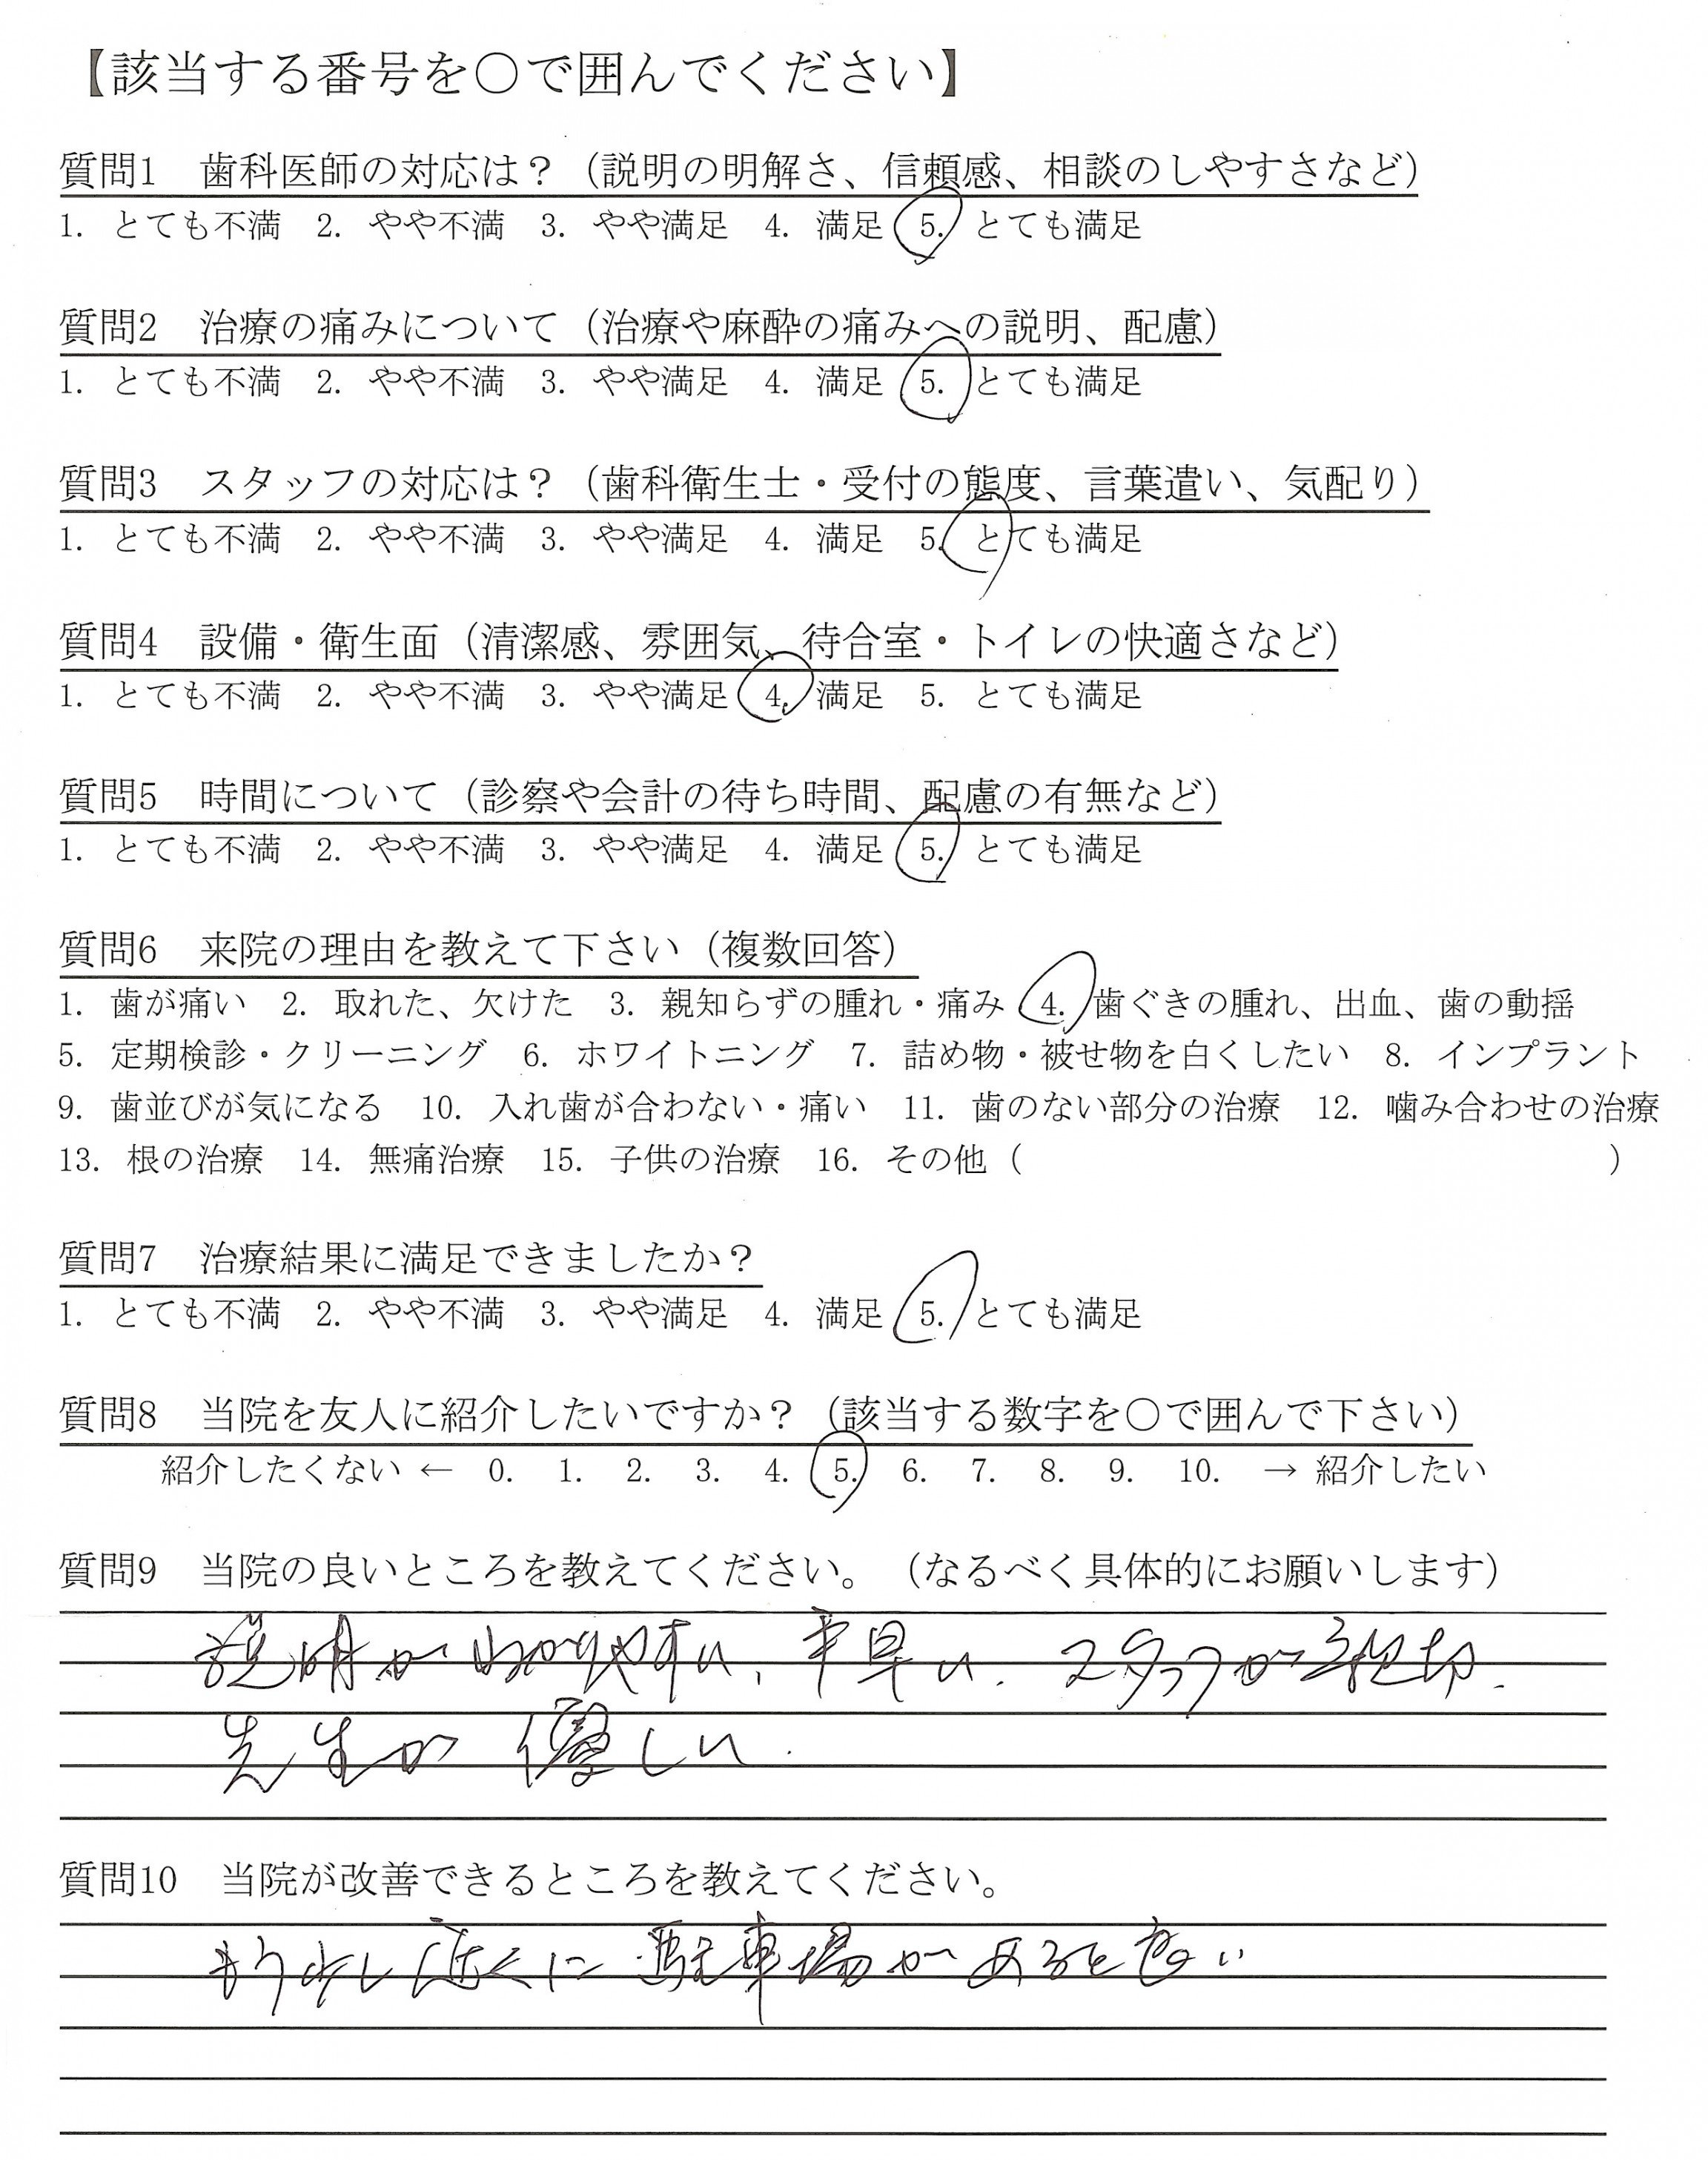 【該当する番号を〇で囲んでください】
質問1　歯科医師の対応は？（説明の明解さ、信頼感、相談のしやすさなど）
1. とても不満　2. やや不満　3. やや満足　4. 満足　5. とても満足
質問2　治療の痛みについて（治療や麻酔の痛みへの説明、配慮）
1. とても不満　2. やや不満　3. やや満足　4. 満足　5. とても満足
質問3　スタッフの対応は？（歯科衛生士・受付の態度、言葉遣い、気配り）
1. とても不満　2. やや不満　3. やや満足　4. 満足　5. とても満足
質問4　設備・衛生面（清潔感、雰囲気、待合室・トイレの快適さなど）
1. とても不満　2. やや不満　3. やや満足　4. 満足　5. とても満足
質問5　時間について（診察や会計の待ち時間、配慮の有無など）
1. とても不満　2. やや不満　3. やや満足　4. 満足　5. とても満足
質問6　来院の理由を教えて下さい（複数回答）
1. 歯が痛い　2. 取れた、欠けた　3. 親知らずの腫れ・痛み　4. 歯ぐきの腫れ、出血、歯の動揺
5. 定期検診・クリーニング　6. ホワイトニング　7. 詰め物・被せ物を白くしたい　8. インプラント
9. 歯並びが気になる　10. 入れ歯が合わない・痛い　11. 歯のない部分の治療　12. 噛み合わせの治療
13. 根の治療　14. 無痛治療　15. 子供の治療　16. その他（　　　　　　　　　　）
質問7　治療結果に満足できましたか？
1. とても不満　2. やや不満　3. やや満足　4. 満足　5. とても満足
質問8　当院を友人に紹介したいですか？（該当する数字を〇で囲んで下さい）
紹介したくない ← 0.　1.　2.　3.　4.　5.　6.　7.　8.　9.　10.　→ 紹介したい
質問9　当院の良いところを教えてください。（なるべく具体的にお願いします）
説明がわかりやすい、手早い．スタッフが親切．
先生が優しい．
質問10　当院が改善できるところを教えてください。
もう少し近くに駐車場があると良い